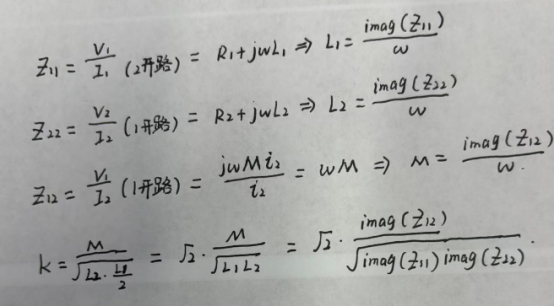 Z₁₁ = V₁/I₁ (2开路) = R₁+jωL₁ ⇒ L₁ = imag(Z₁₁)/ω
Z₂₂ = V₂/I₂ (1开路) = R₂+jωL₂ ⇒ L₂ = imag(Z₂₂)/ω
Z₁₂ = V₁/I₂ (1开路) = jωMi₂/i₂ = ωM ⇒ M = imag(Z₁₂)/ω.
k = M/√(L₂·L1/2) = √2·M/√(L₁L₂) = √2·imag(Z₁₂)/√(imag(Z₁₁)imag(Z₂₂)).